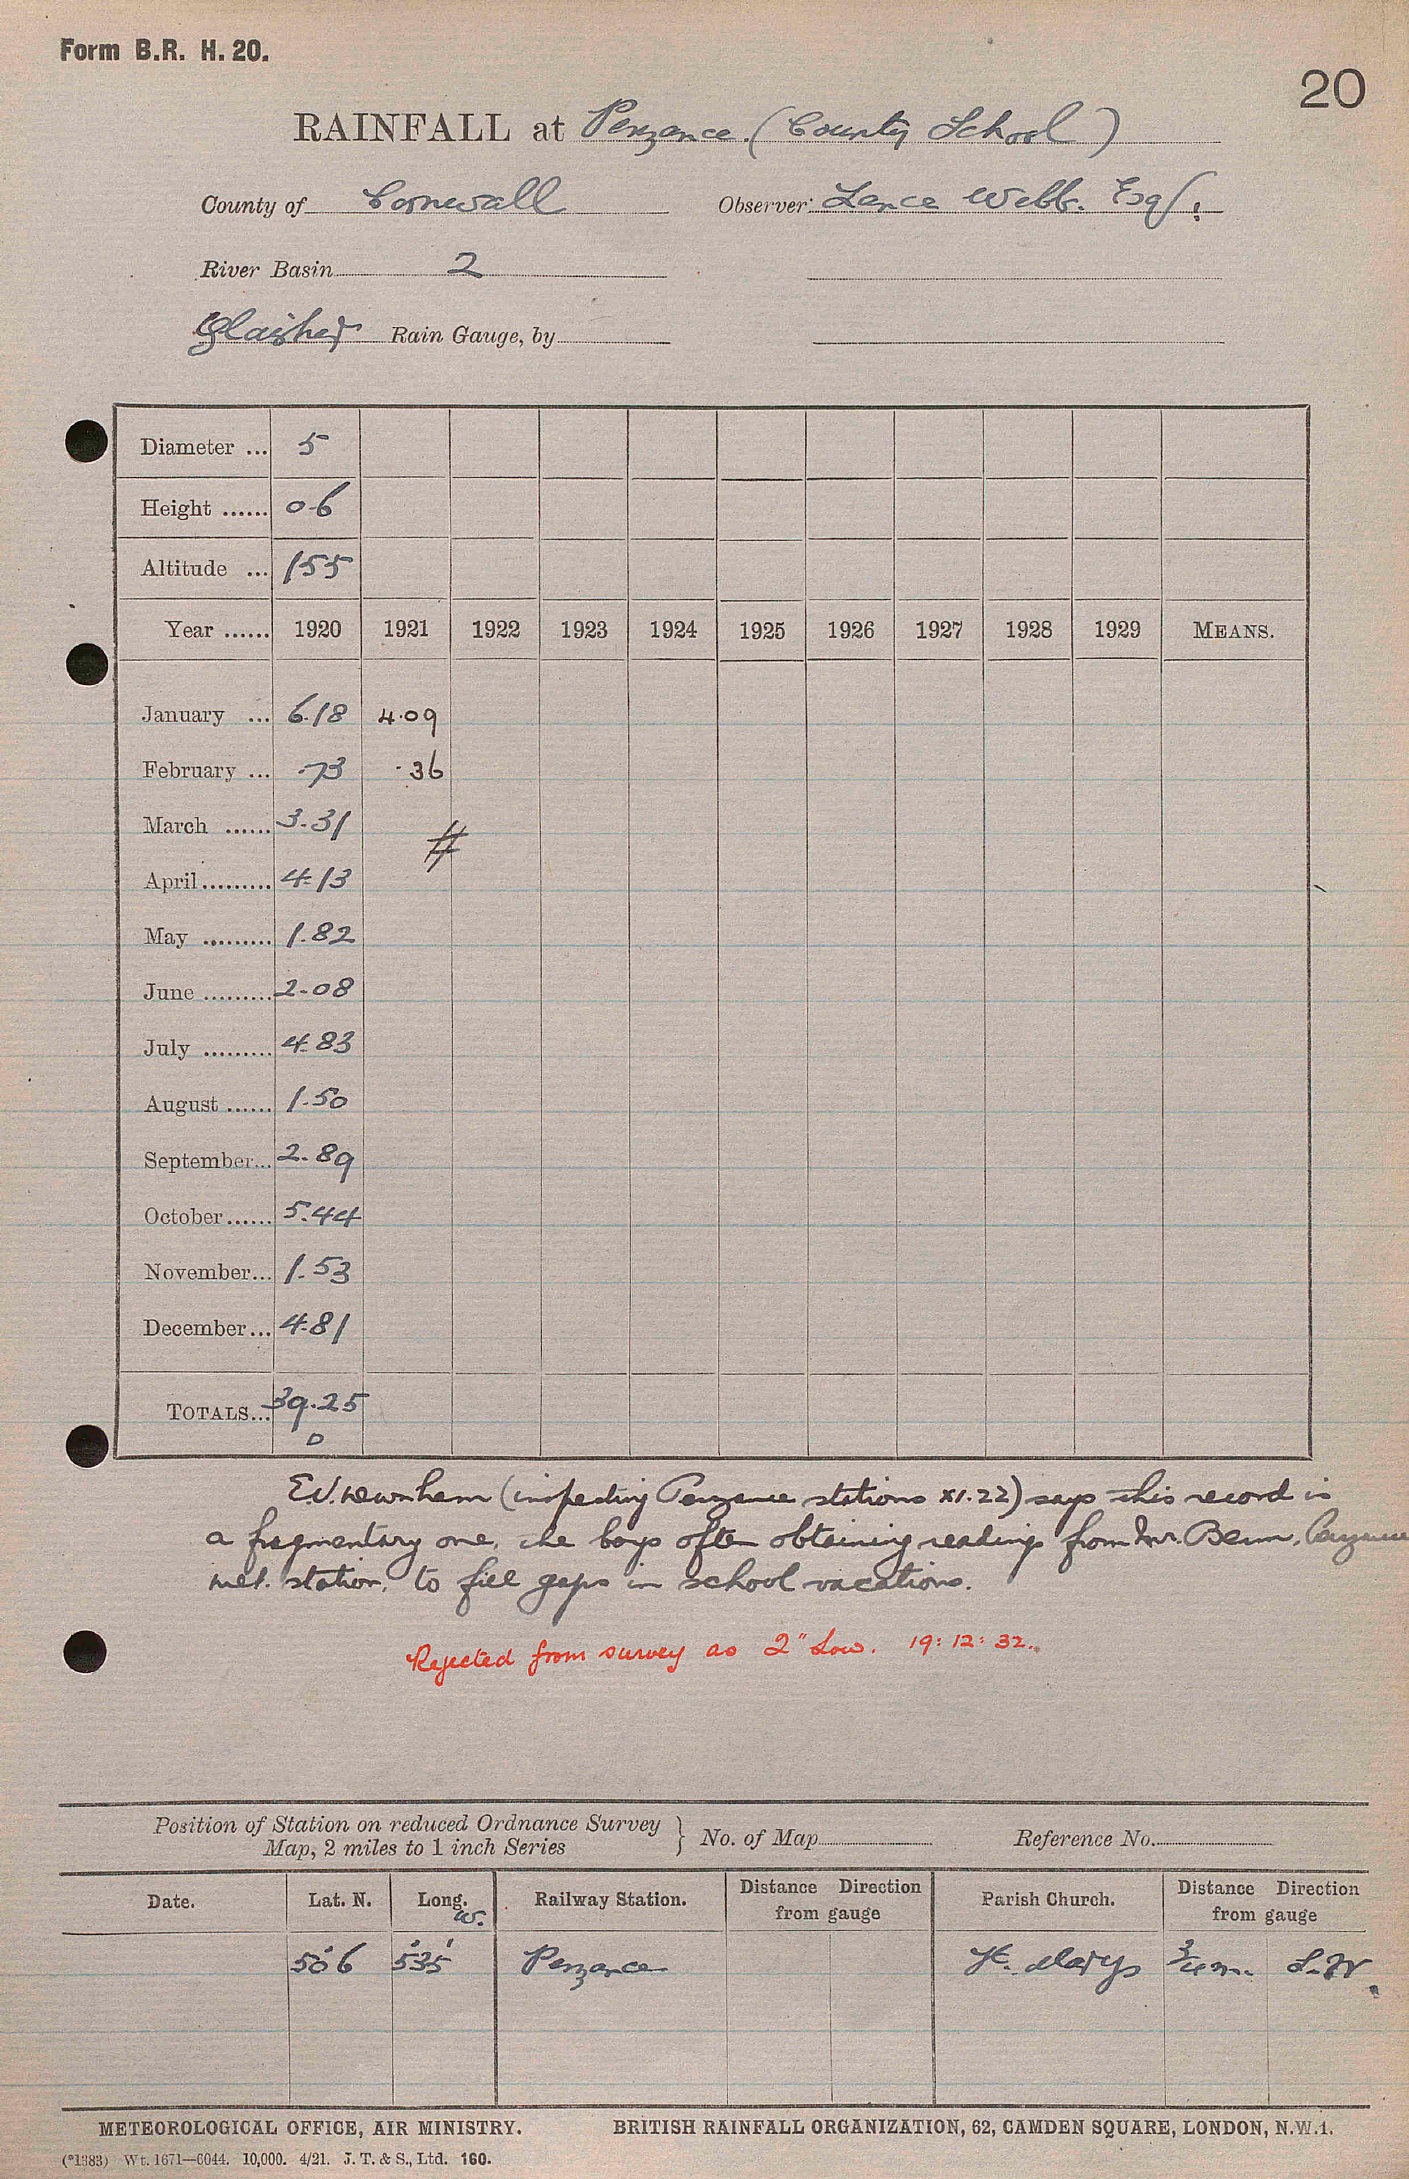 Form B.R. H. 20.
20
RAINFALL at Penzance. (County School)
County of Cornwall Observer: Lance Webb. Esq.
River Basin 2
Glaisher Rain Gauge, by
Diameter ... 5
Height ...... 0-6
Altitude ... 155
Year ...... 1920 1921 1922 1923 1924 1925 1926 1927 1928 1929 MEANS.
January ... 6.18 4.09
February ... .73 .36
March ...... 3.31
#
April ......... 4.13
May ......... 1.82
June ......... 2.08
July ......... 4.83
August ...... 1.50
September... 2.89
October ...... 5.44
November... 1.53
December ... 4.81
TOTALS... 39.25
D
E.V. Newnham (inspecting Penzance stations XI.22) says this record is
a fragmentary one, the boys often obtaining readings from Mr. Benn, Penzance
Met. station, to fill gaps in school vacations.
Rejected from survey as 2" Low. 19: 12: 32.
Position of Station on reduced Ordnance Survey
Map, 2 miles to 1 inch Series } No. of Map Reference No.
Date. Lat. N. Long. W. Railway Station. Distance Direction from gauge Parish Church. Distance Direction from gauge
50° 6' 5° 35' Penzance St. Marys 3/4 m. S.W.
METEOROLOGICAL OFFICE, AIR MINISTRY. BRITISH RAINFALL ORGANIZATION, 62, CAMDEN SQUARE, LONDON, N.W.1.
(*1383) Wt. 1671—6044. 10,000. 4/21. J. T. & S., Ltd. 160.